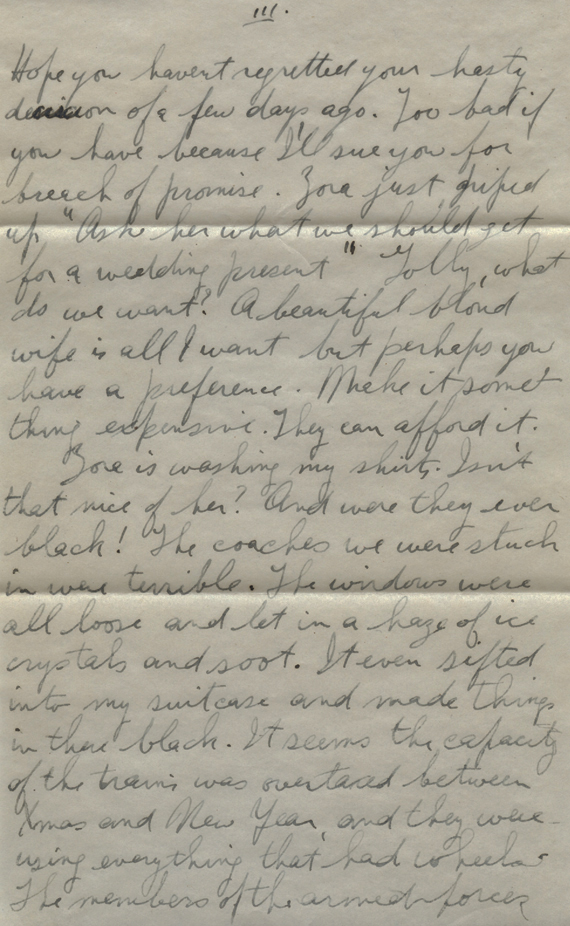 III.
Hope you haven't regretted your hasty
decision of a few days ago. Too bad if
you have because I'll sue you for
breach of promise. Zora just griped
up "Ask her what we should get
for a wedding present" Golly, what
do we want? A beautiful blond
wife is all I want but perhaps you
have a preference. Make it some-
thing expensive. They can afford it.
Zora is washing my shirts. Isn't
that nice of her? And were they ever
black! The coaches we were stuck
in were terrible. The windows were
all loose and let in a haze of ice
crystals and soot. It even sifted
into my suitcase and made things
in there black. It seems the capacity
of the trains was overtaxed between
Xmas and New Year, and they were
using everything that had wheels.
The members of the armed forces